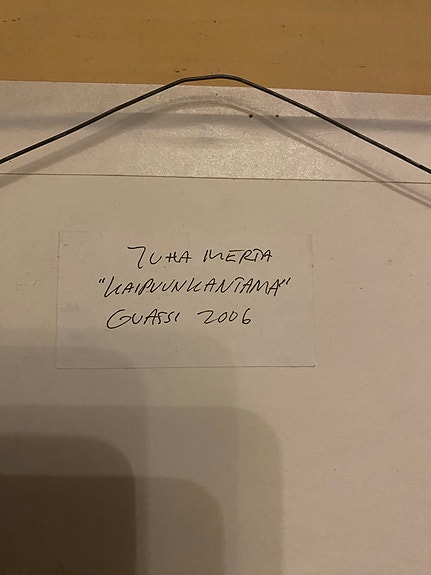 JUHA KERTA
"KAIPUUNKANTAMA"
GUASSI 2006